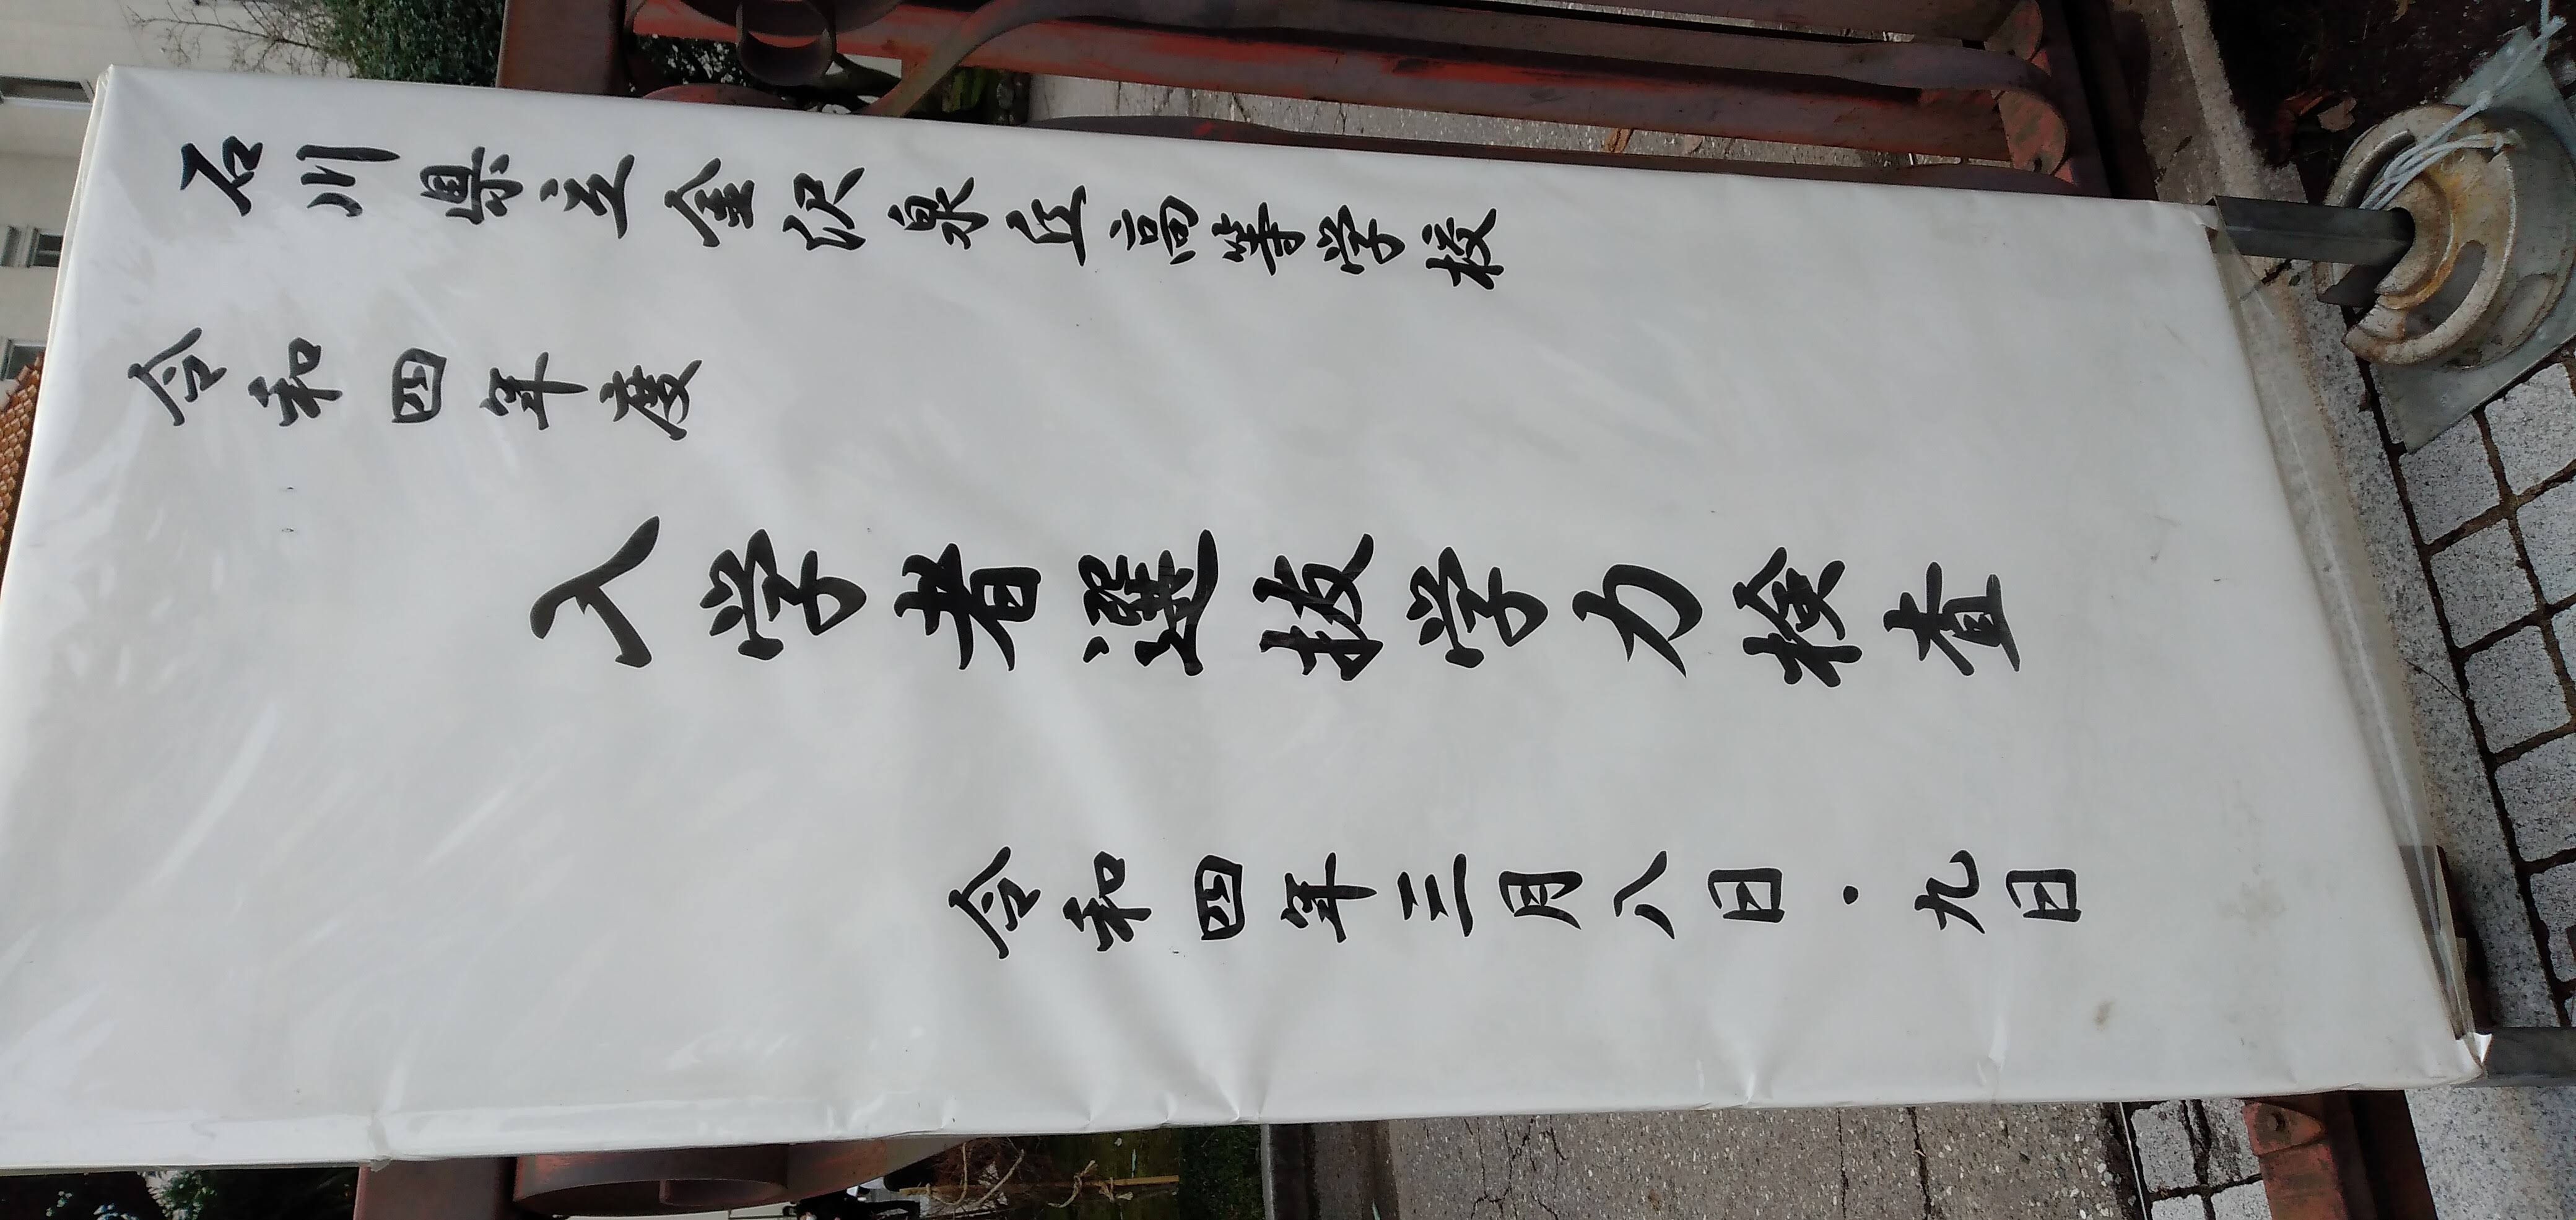 石川県立金沢泉丘高等学校
令和四年度
入学者選抜学力検査
令和四年三月八日・九日